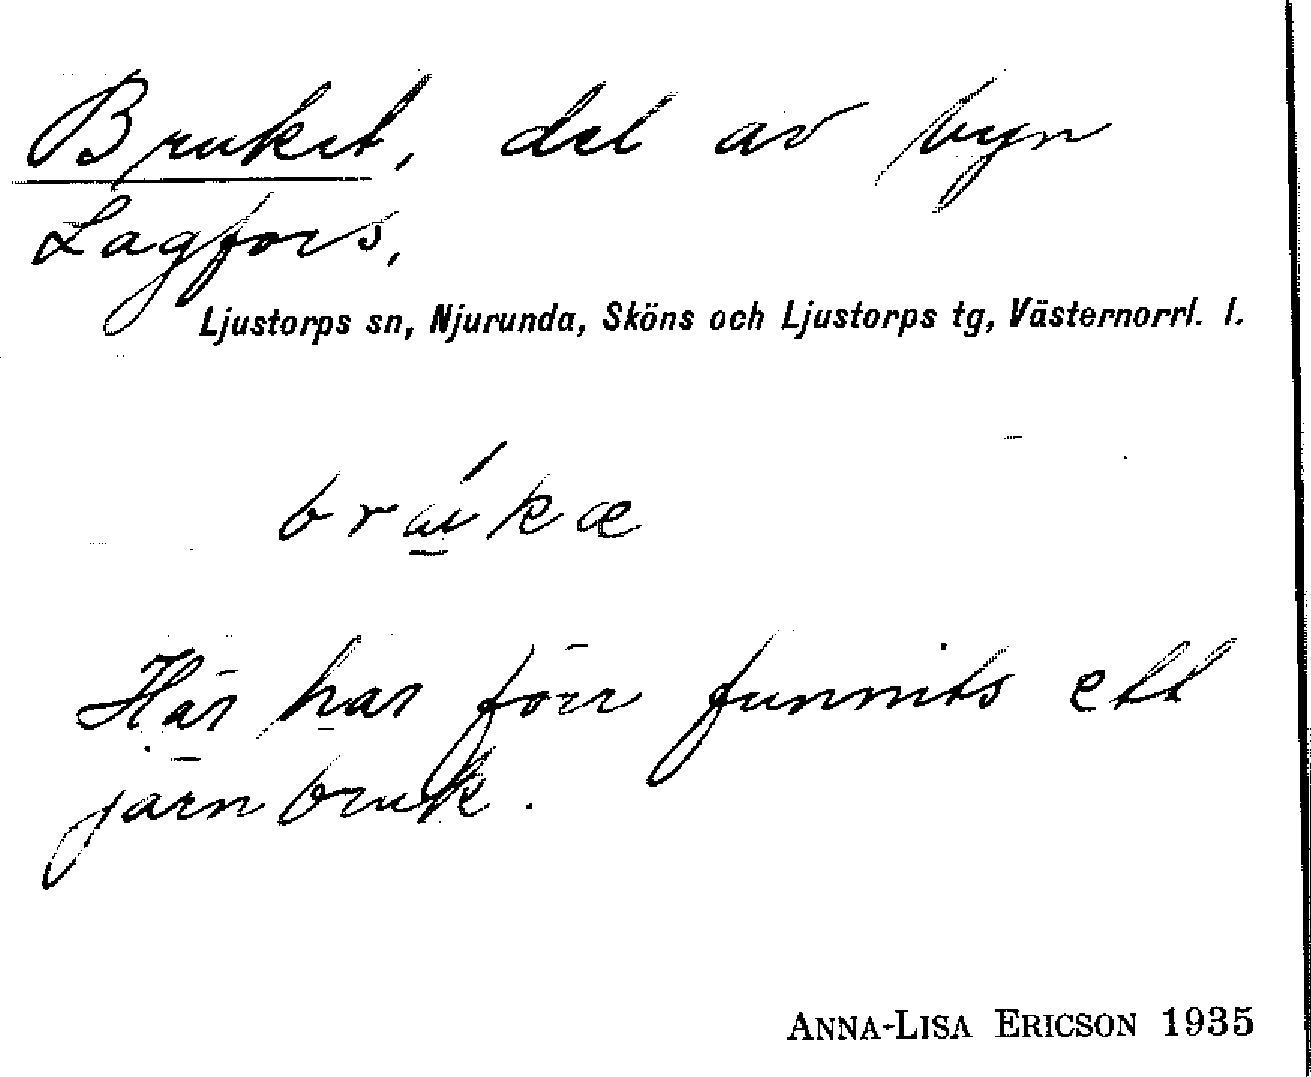 Bruket, del av byn
Lagfors,
Ljustorps sn, Njurunda, Sköns och Ljustorps tg, Västernorrl. l.
Här har förr funnits ett
järnbruk.
ANNA-LISA ERICSON 1935